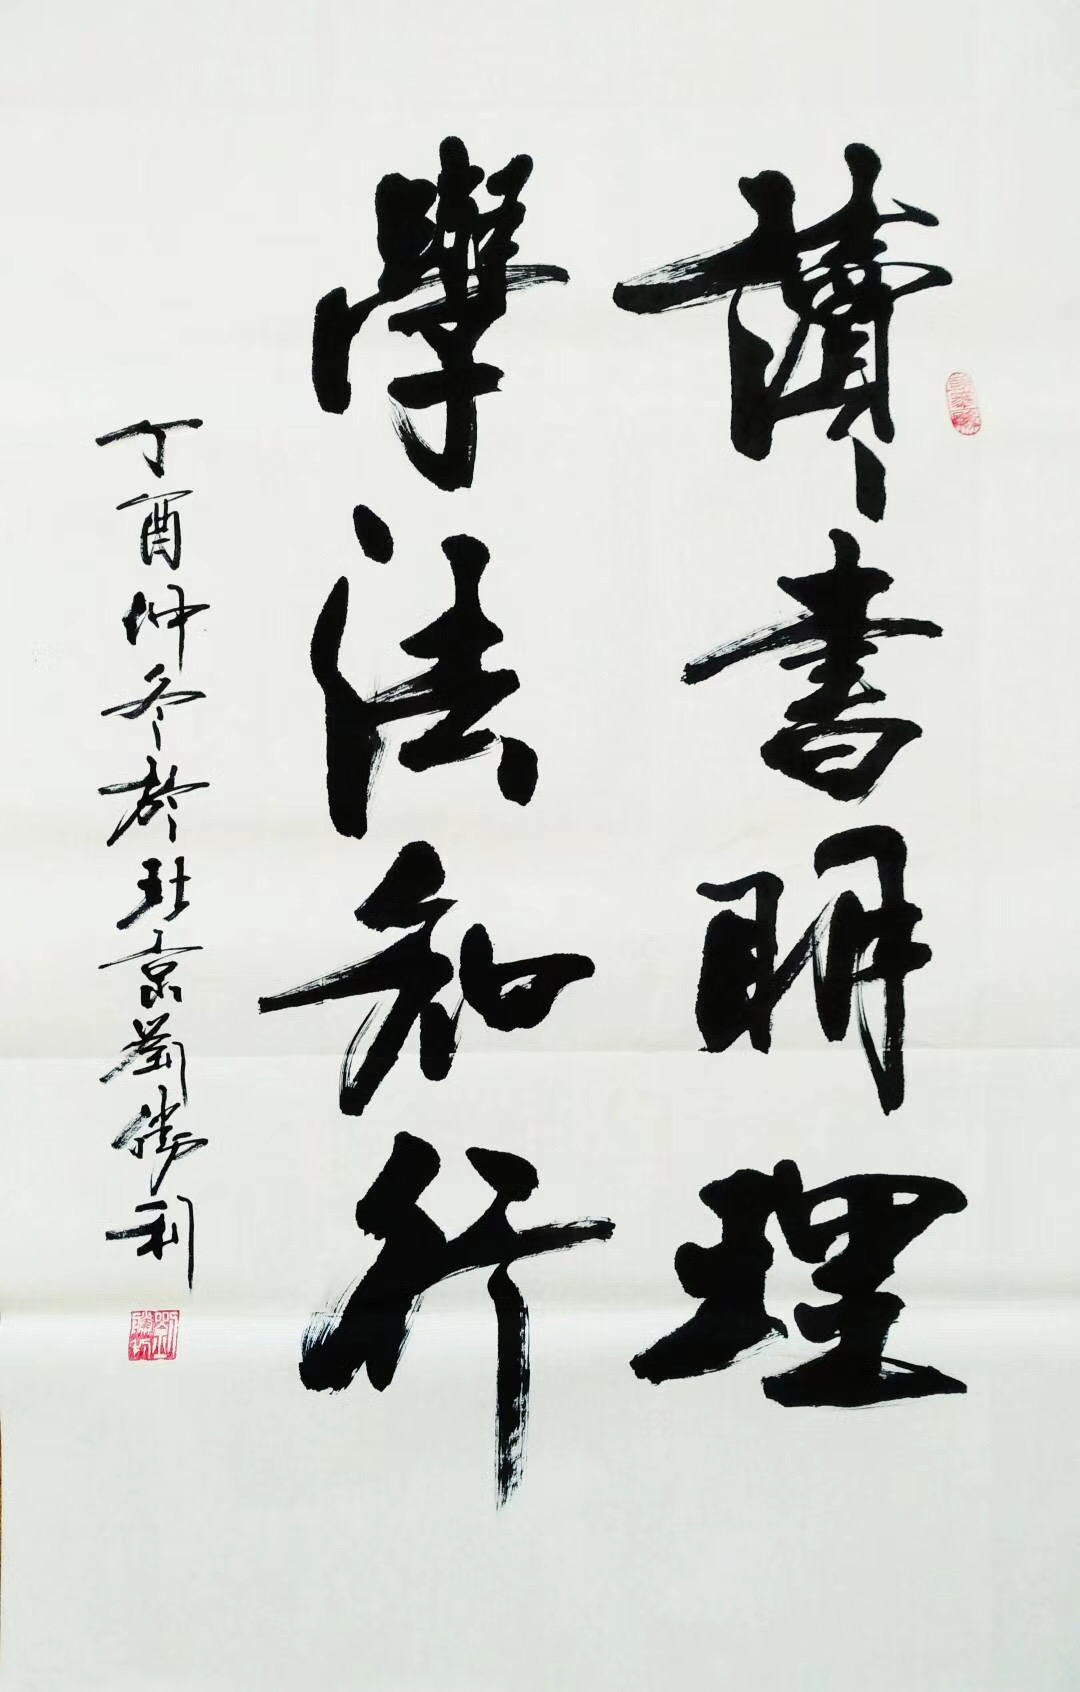 讀書明理
學法知行
丁酉仲冬於北京劉勝利